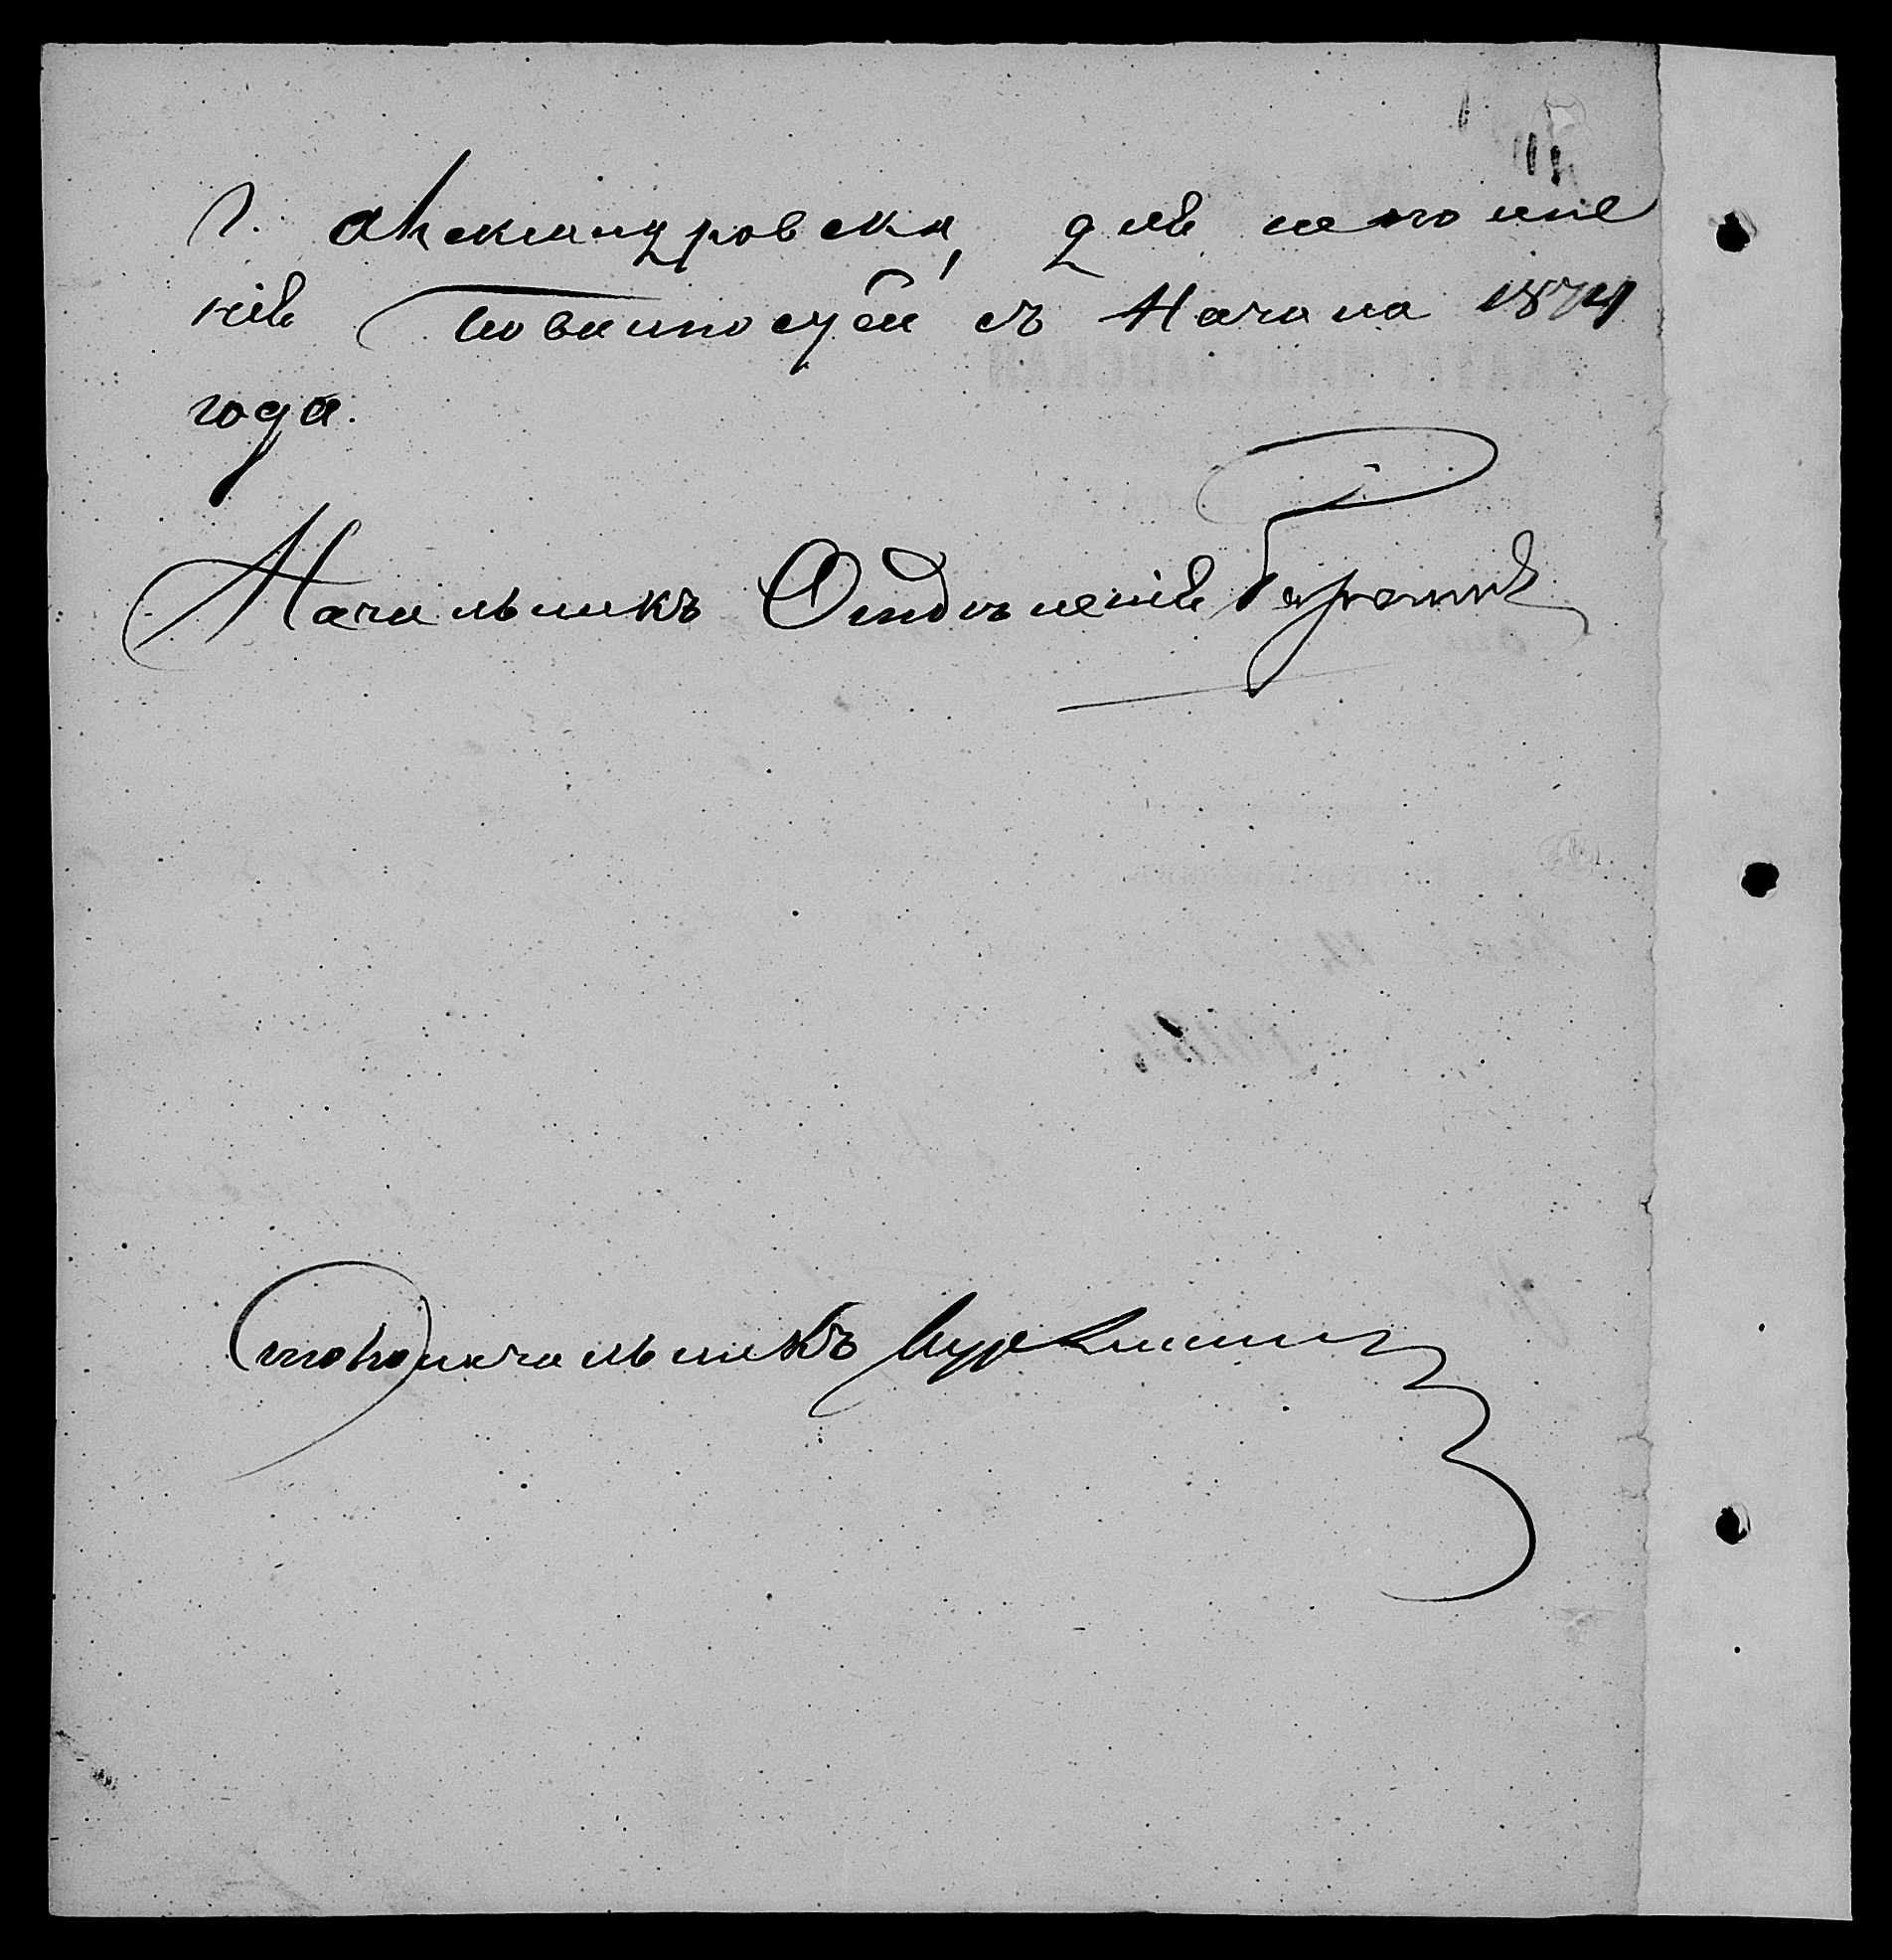 г. Александровска, для исполне
нія повинностей съ Начала 1874
года.
Начальникъ Отдѣленія
Столоначальникъ